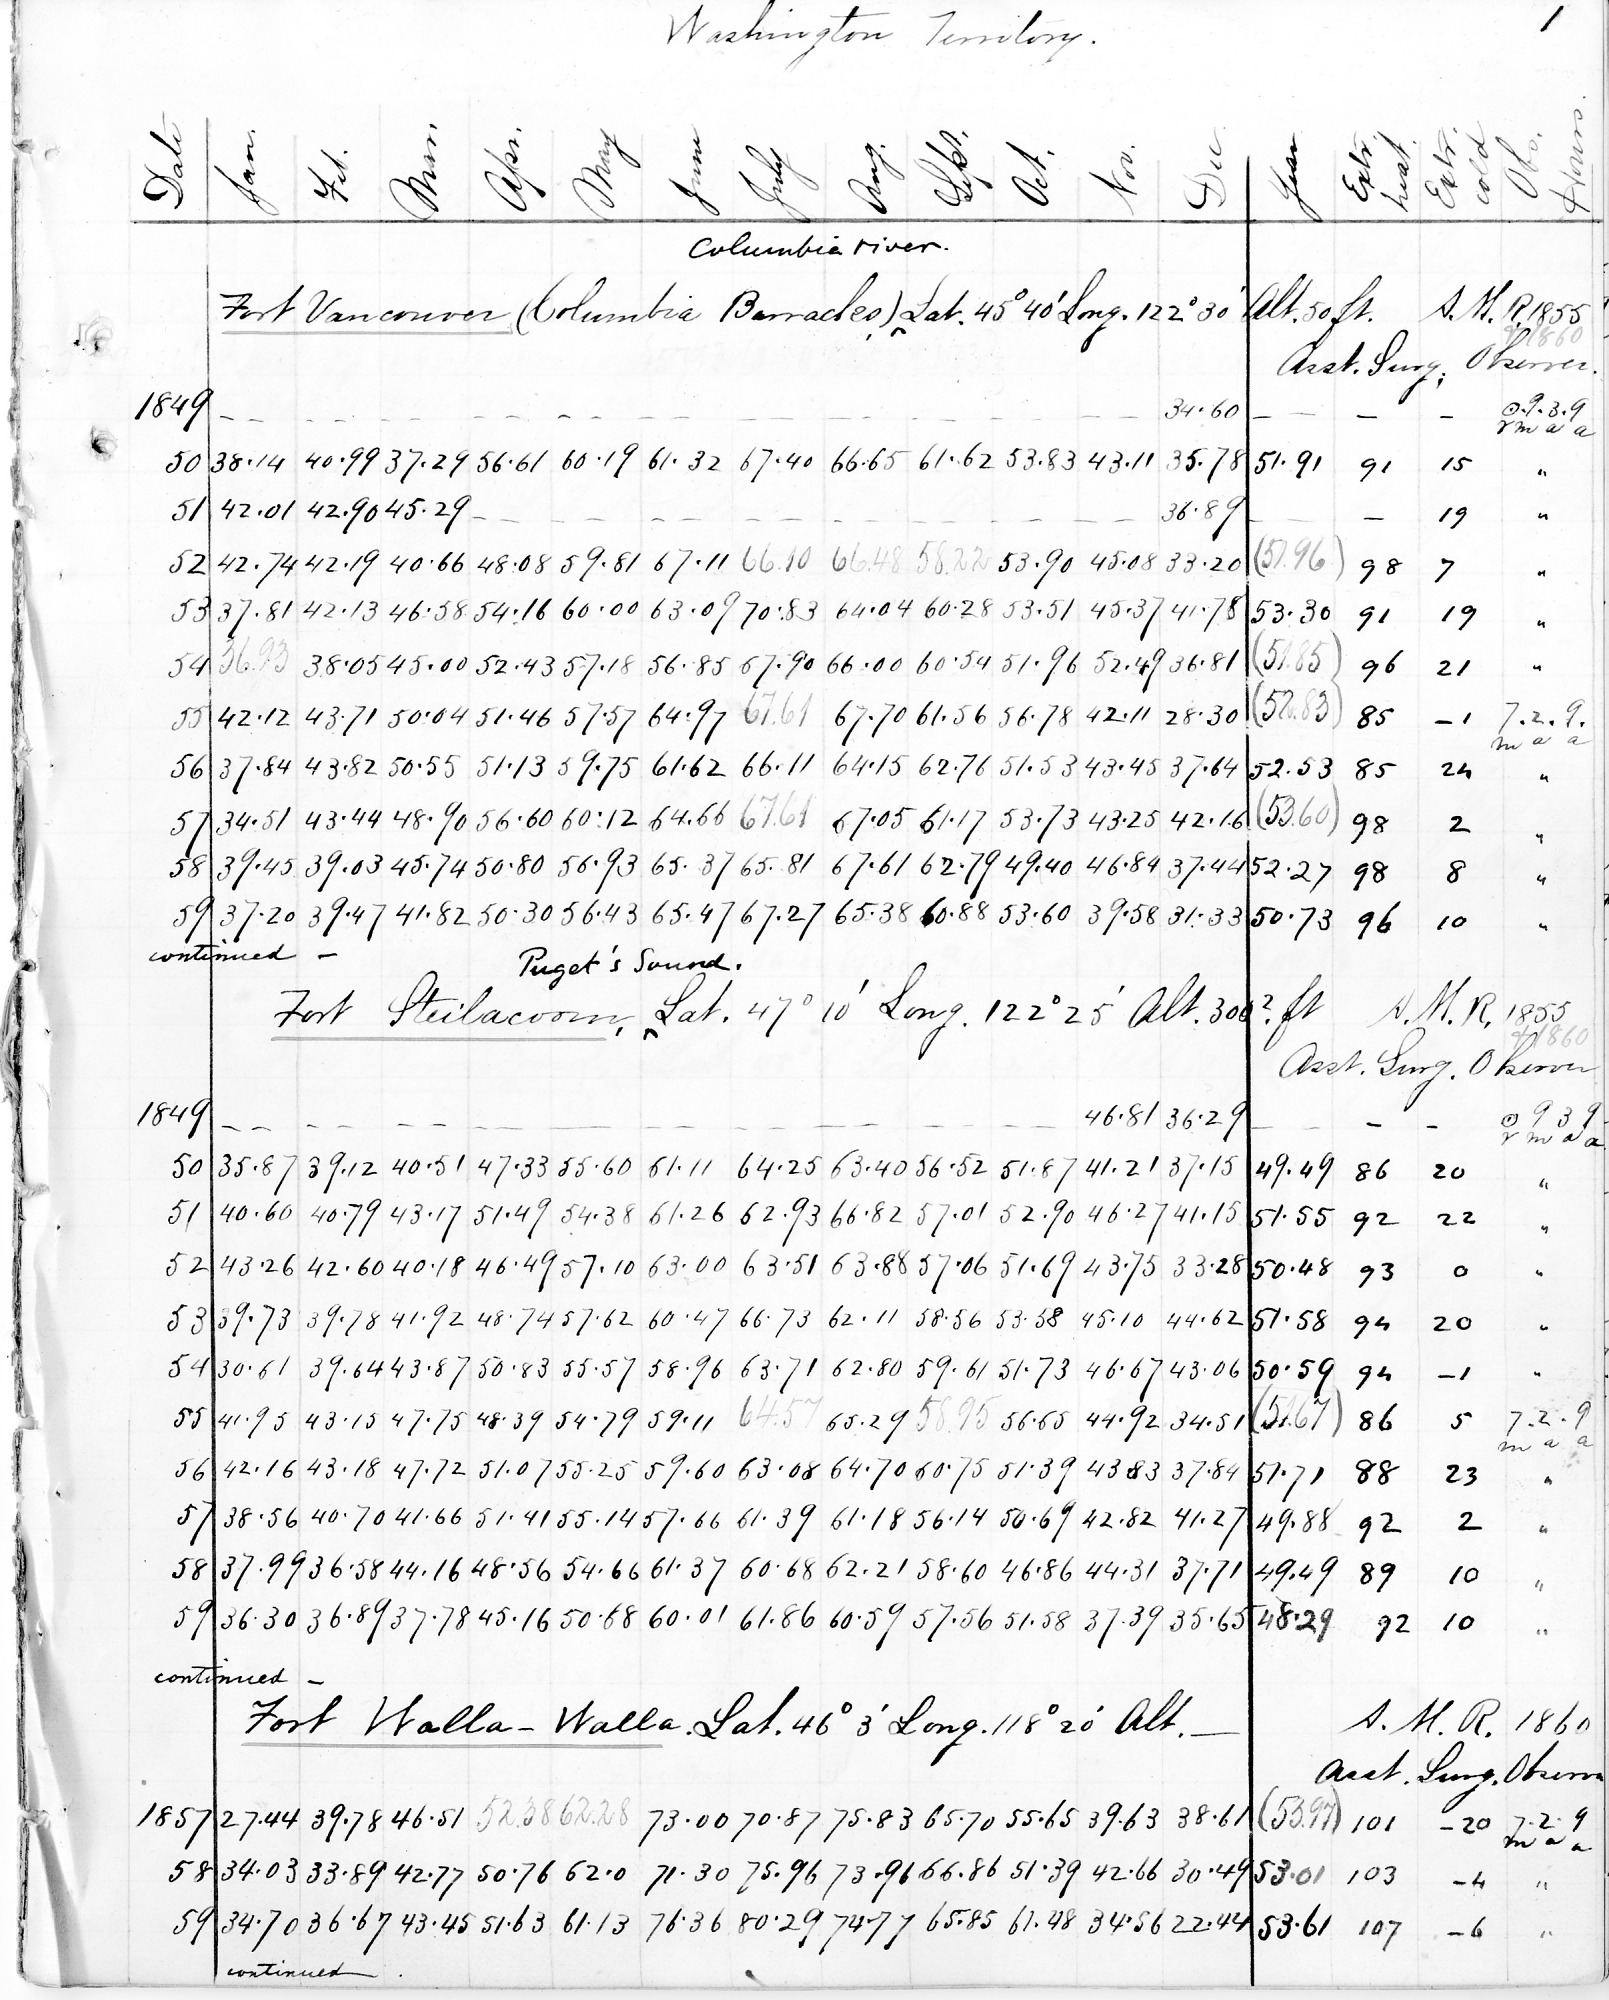 1
Washington Territory.
Date Jan. Feb. Mar. Apr. May June July Aug. Sept. Oct. Nov. Dec. Year Extr. heat. Extr. cold Obs. Hours.
Columbia river.
Fort Vancouver (Columbia Barracks), ^ Lat. 45° 40' Long. 122° 30' Alt. 50 ft. A. M. R. 1855
& 1860
Asst. Surg; Observer.
1849 – – – – – – – – – – – 34.60 – – – ⊙.9.3.9
r m a a
50 38.14 40.99 37.29 56.61 60.19 61.32 67.40 66.65 61.62 53.83 43.11 35.78 51.91 91 15 "
51 42.01 42.90 45.29 – – – – – – – – 36.89 – – 19 "
52 42.74 42.19 40.66 48.08 59.81 67.11 66.10 66.48 58.22 53.90 45.08 33.20 (51.96) 98 7 "
53 37.81 42.13 46.58 54.16 60.00 63.09 70.83 64.04 60.28 53.51 45.37 41.78 53.30 91 19 "
54 36.93 38.05 45.00 52.43 57.18 56.85 67.90 66.00 60.54 51.96 52.49 36.81 (51.85) 96 21 "
55 42.12 43.71 50.04 51.46 57.57 64.97 67.61 67.70 61.56 56.78 42.11 28.30 (52.83) 85 –1 7.2.9.
m a a
56 37.84 43.82 50.55 51.13 59.75 61.62 66.11 64.15 62.76 51.53 43.45 37.64 52.53 85 24 "
57 34.51 43.44 48.90 56.60 60.12 64.66 67.61 67.05 61.17 53.73 43.25 42.16 (53.60) 98 2 "
58 39.45 39.03 45.74 50.80 56.93 65.37 65.81 67.61 62.79 49.40 46.84 37.44 52.27 98 8 "
59 37.20 39.47 41.82 50.30 56.43 65.47 67.27 65.38 60.88 53.60 39.58 31.33 50.73 96 10 "
continued –
Puget's Sound.
Fort Steilacoom, ^ Lat. 47° 10' Long. 122° 25' Alt. 300?. ft A. M. R. 1855
& 1860
Asst. Surg. Observer
1849 – – – – – – – – – – 46.81 36.29 – – – ⊙ 9 3 9
r m a a
50 35.87 39.12 40.51 47.33 55.60 61.11 64.25 63.40 56.52 51.87 41.21 37.15 49.49 86 20 "
51 40.60 40.79 43.17 51.49 54.38 61.26 62.93 66.82 57.01 52.90 46.27 41.15 51.55 92 22 "
52 43.26 42.60 40.18 46.49 57.10 63.00 63.51 63.88 57.06 51.69 43.75 33.28 50.48 93 0 "
53 39.73 39.78 41.92 48.74 57.62 60.47 66.73 62.11 58.56 53.58 45.10 44.62 51.58 94 20 "
54 30.61 39.64 43.87 50.83 55.57 58.96 63.71 62.80 59.61 51.73 46.67 43.06 50.59 94 –1 "
55 41.95 43.15 47.75 48.39 54.79 59.11 64.57 65.29 58.95 56.65 44.92 34.51 (51.67) 86 5 7.2.9
m a a
56 42.16 43.18 47.72 51.07 55.25 59.60 63.08 64.70 60.75 51.39 43.83 37.84 51.71 88 23 "
57 38.56 40.70 41.66 51.41 55.14 57.66 61.39 61.18 56.14 50.69 42.82 41.27 49.88 92 2 "
58 37.99 36.58 44.16 48.56 54.66 61.37 60.68 62.21 58.60 46.86 44.31 37.71 49.49 89 10 "
59 36.30 36.89 37.78 45.16 50.68 60.01 61.86 60.59 57.56 51.58 37.39 35.65 48.29 92 10 "
continued –
Fort Walla – Walla. Lat. 46° 3' Long. 118° 20' Alt. — A. M. R. 1860
Asst. Surg. Observer
1857 27.44 39.78 46.51 52.38 62.28 73.00 70.87 75.83 65.70 55.65 39.63 38.61 (53.97) 101 –20 7.2.9
m a a
58 34.03 33.89 42.77 50.76 62.0 71.30 75.96 73.96 66.86 51.39 42.66 30.49 53.01 103 –4 "
59 34.70 36.67 43.45 51.63 61.13 76.36 80.29 74.77 65.85 61.48 34.56 22.44 53.61 107 –6 "
continued.